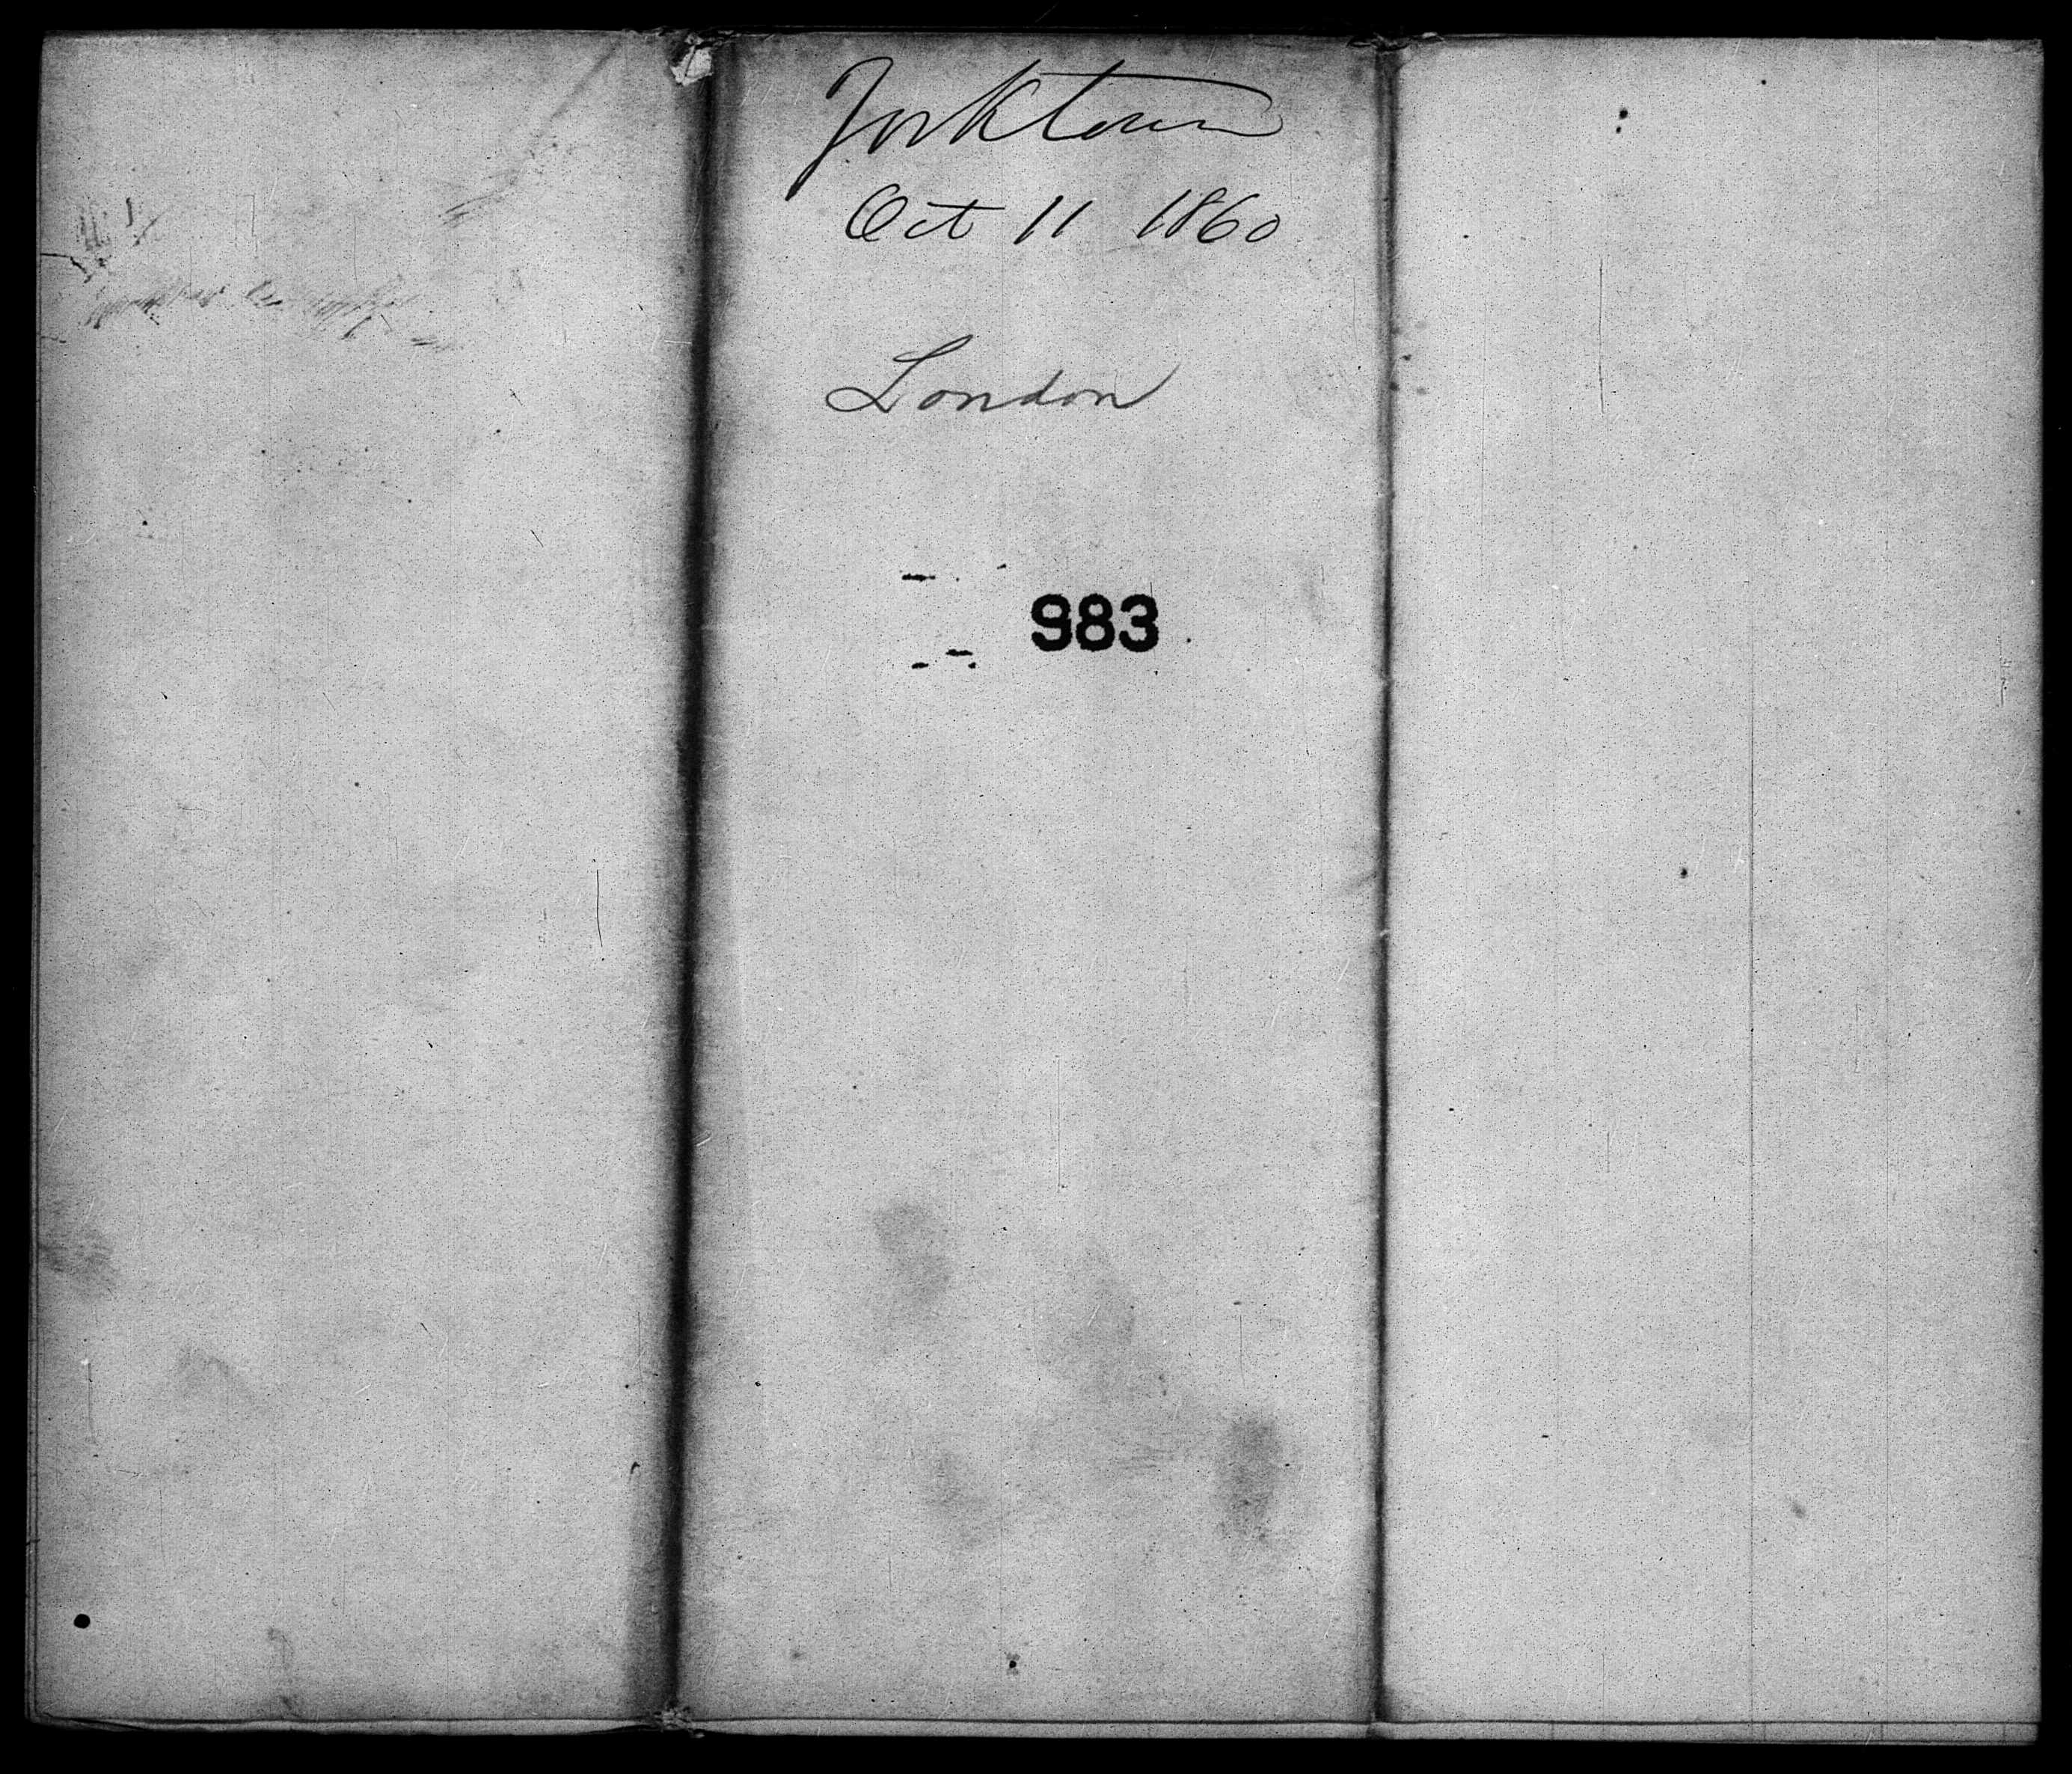 Yorktown
Oct 11 1860
London
983